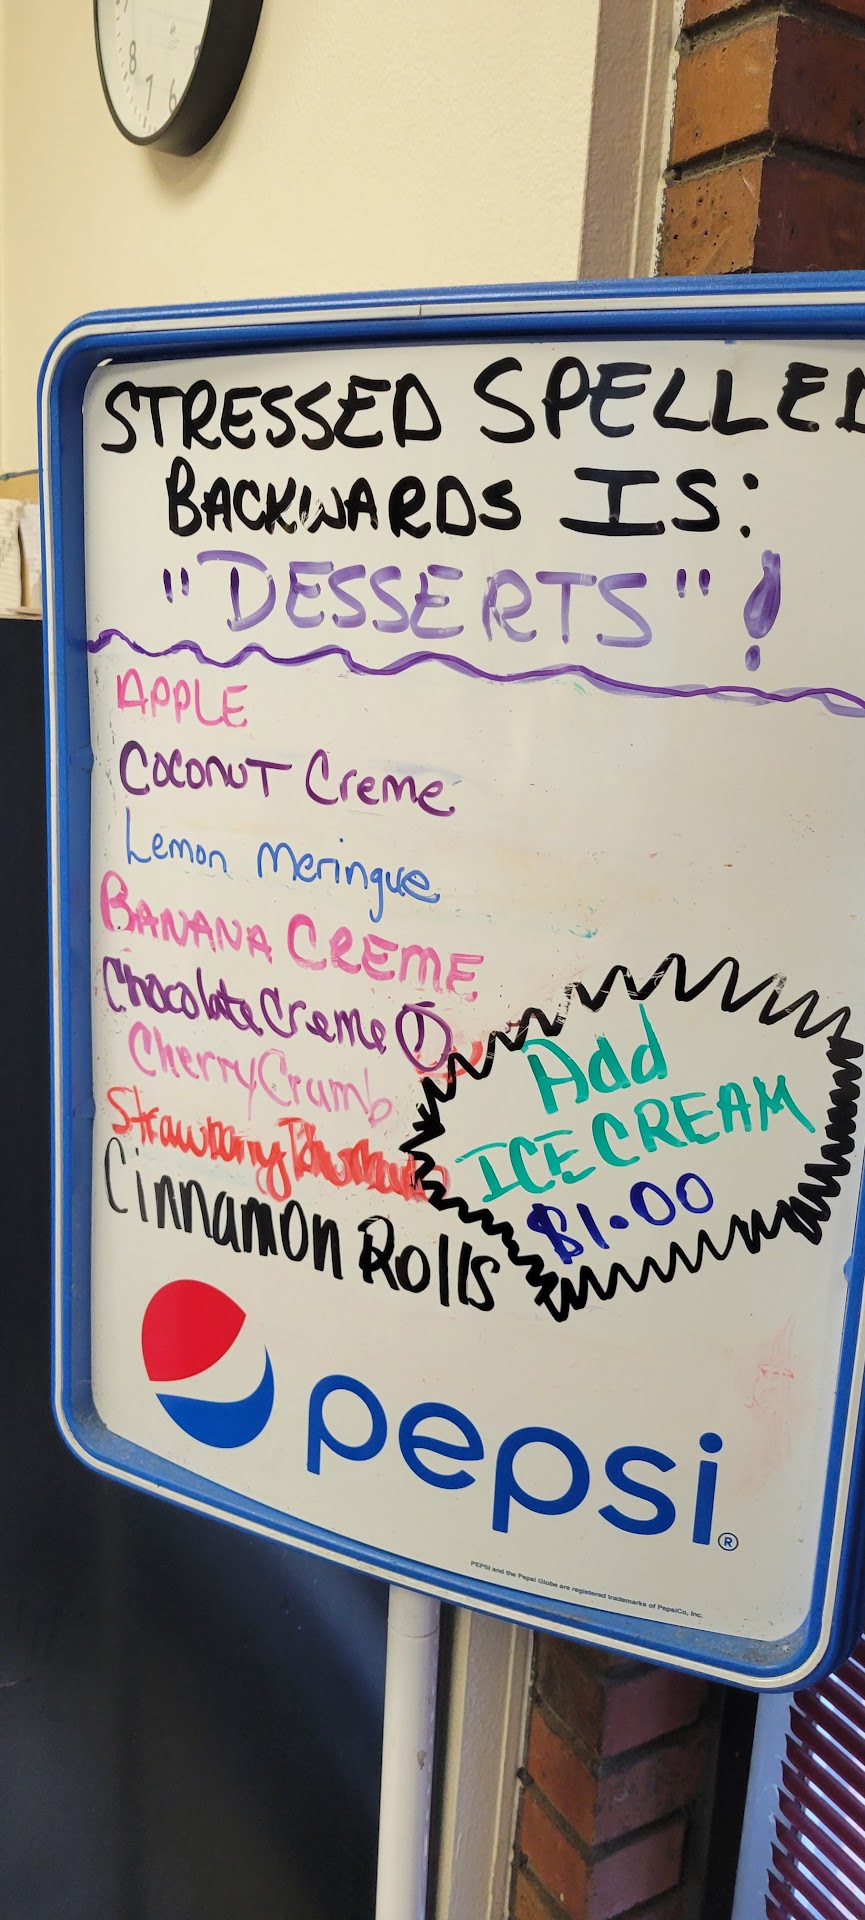 8
7
6
STRESSED SPELLED
BACKWARDS IS:
"DESSERTS"!
APPLE
COCONUT Creme
Lemon Meringue
BANANA CREME
Chocolate Creme 1
Cherry Crumb
Strawberry Rhubarb
Cinnamon Rolls
Add
ICE CREAM
$1.00
pepsi®
PEPSI and the Pepsi Globe are registered trademarks of PepsiCo, Inc.